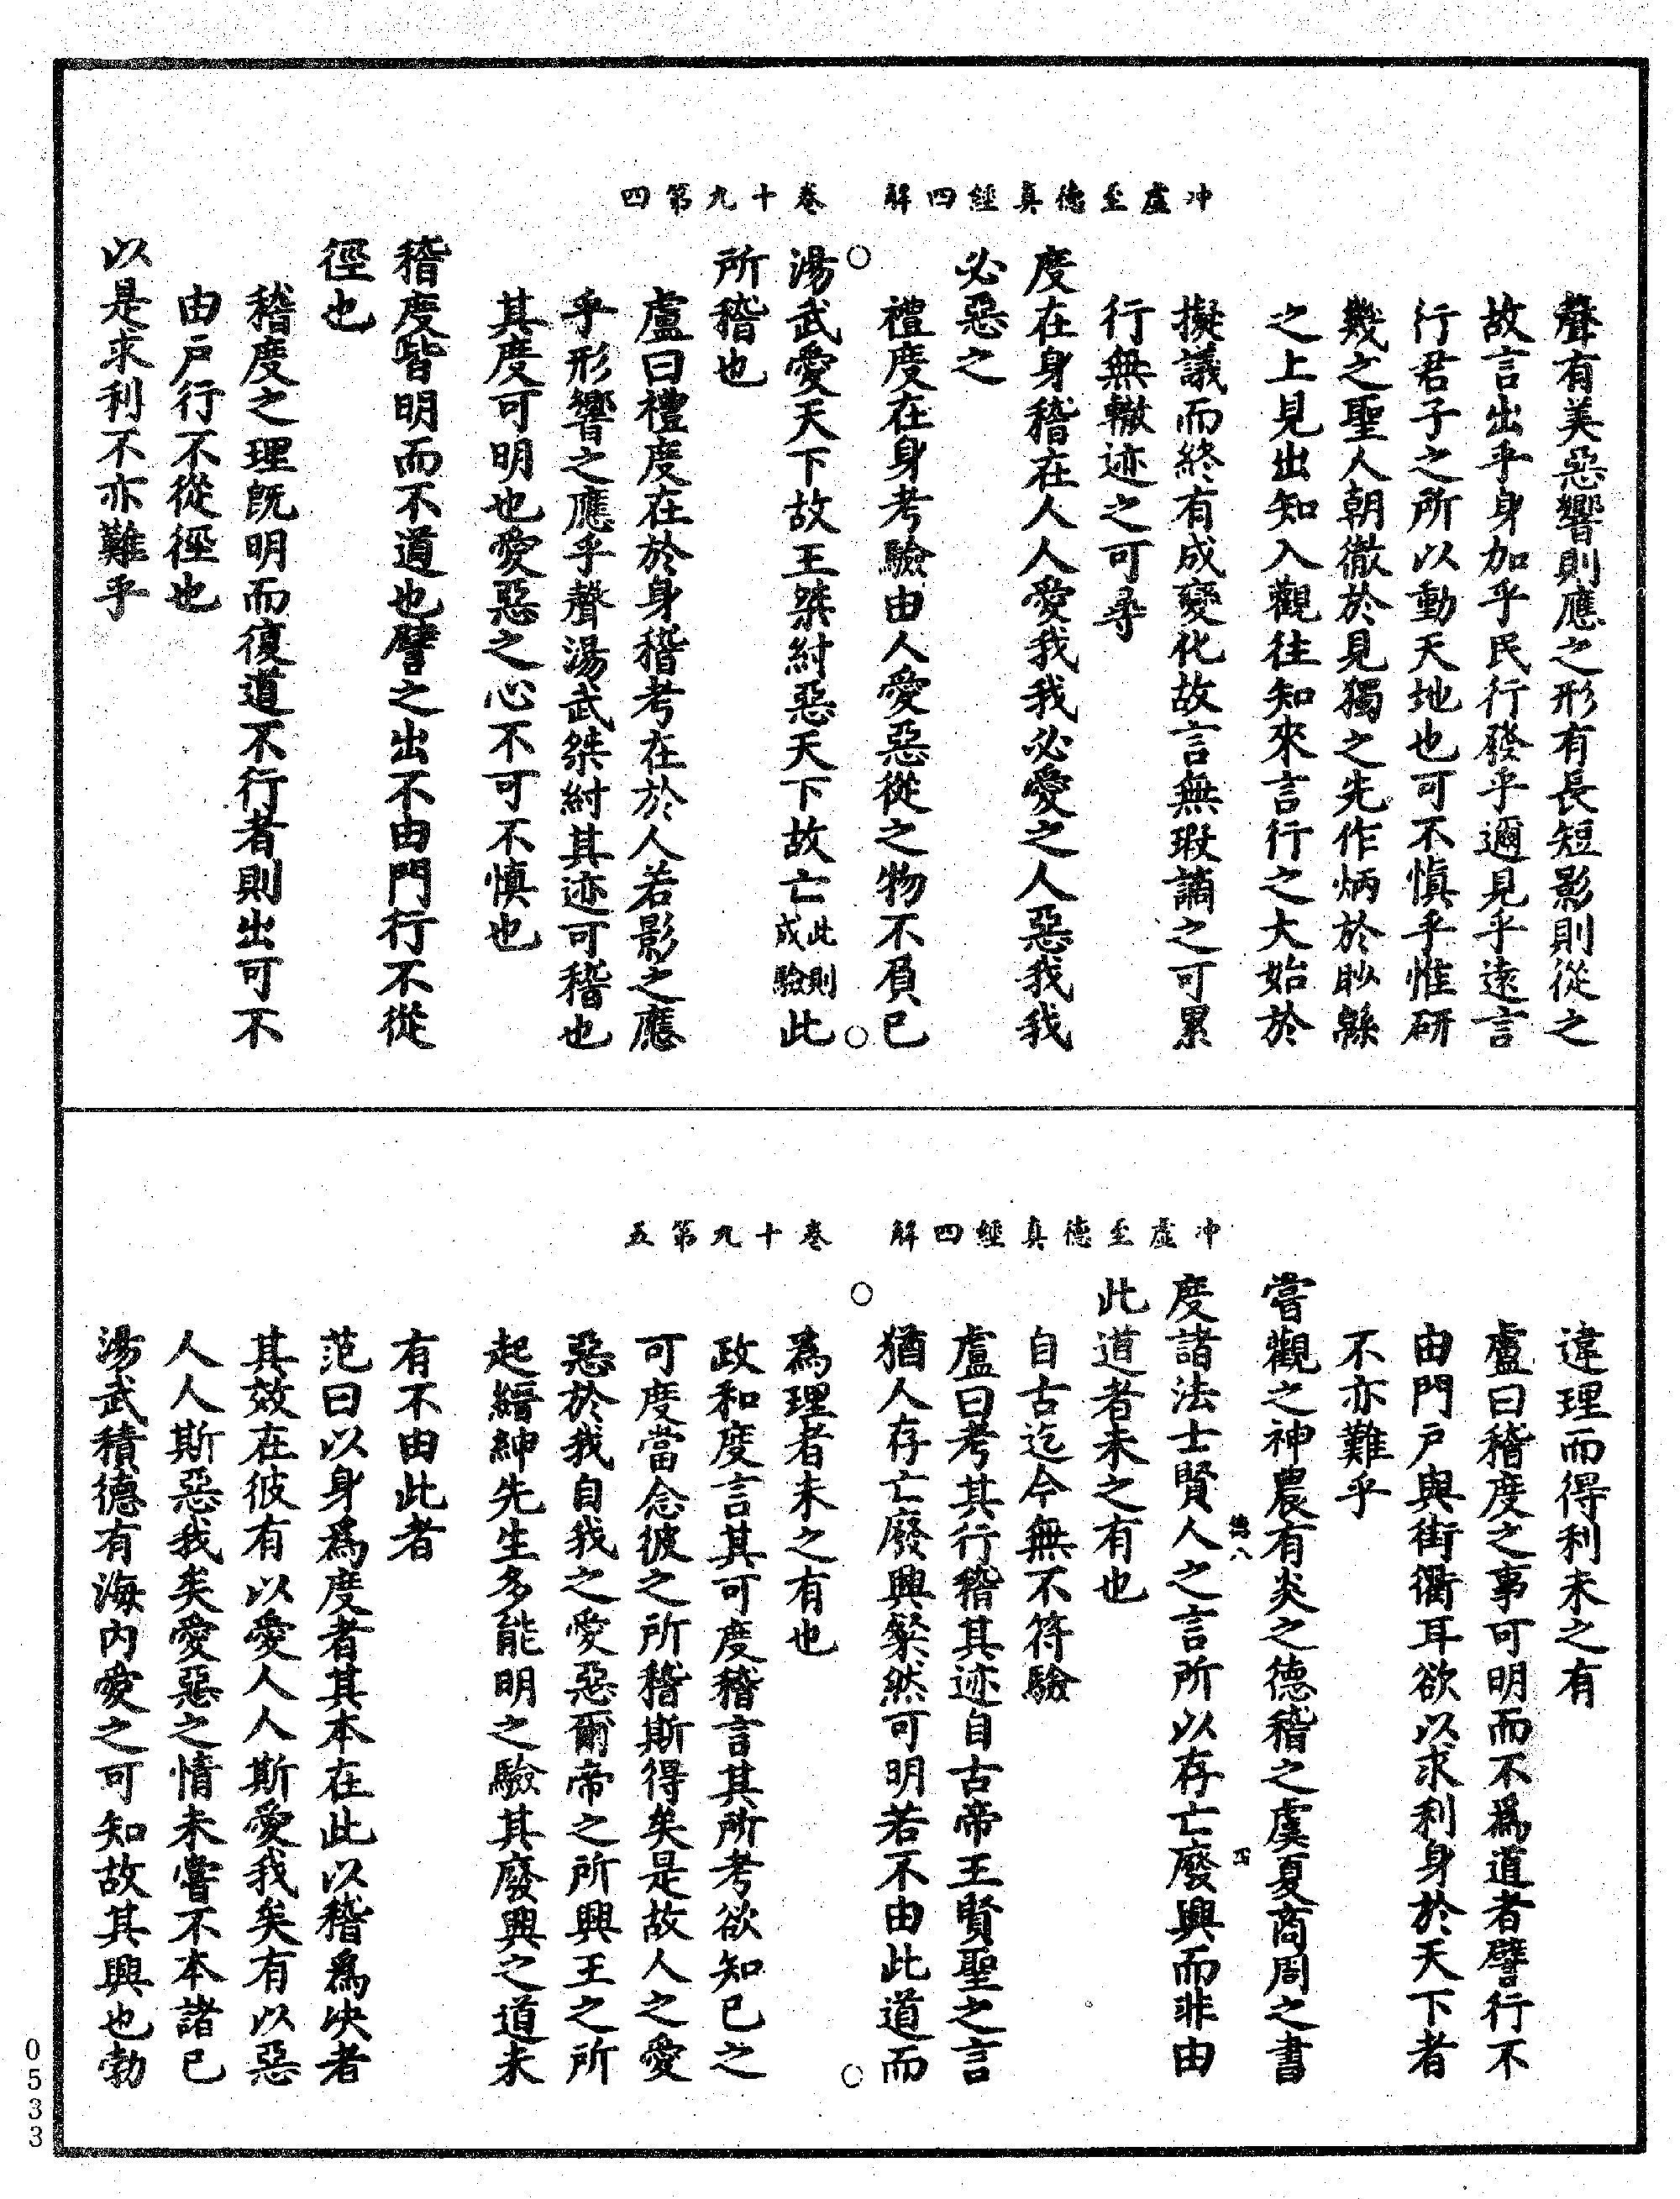 冲虛至德真經四解　卷十九第四
聲有美惡響則應之形有長短影則從之
故言出乎身加乎民行發乎邇見乎遠言
行君子之所以動天地也可不愼乎惟研
幾之聖人朝徹於見獨之先作炳於眇緜
之上見出知入觀往知來言行之大始於
擬議而終有成變化故言無瑕謫之可累
行無轍迹之可尋
度在身稽在人人愛我我必愛之人惡我我
必惡之
禮度在身考驗由人愛惡從之物不負已
湯武愛天下故王桀紂惡天下故亡此則成驗此
所稽也
盧曰禮度在於身稽考在於人若影之應
乎形響之應乎聲湯武桀紂其迹可稽也
其度可明也愛惡之心不可不慎也
稽度皆明而不道也譬之出不由門行不從
徑也
稽度之理旣明而復道不行者則出可不
由戶行不從徑也
以是求利不亦難乎
冲虛至德真經四解　卷十九第五
違理而得利未之有
盧曰稽度之事可明而不爲道者譬行不
由門戶與街衢耳欲以求利身於天下者
不亦難乎
嘗觀之神農有炎之德稽之虞夏商周之書
度諸法士賢人之言所以存亡廢興而非由
此道者未之有也
自古迄今無不符驗
盧曰考其行稽其迹自古帝王賢聖之言
猶人存亡廢興粲然可明若不由此道而
為理者未之有也
政和度言其可度稽言其所考欲知已之
可度當念彼之所稽斯得矣是故人之愛
惡於我自我之愛惡爾帝之所興王之所
起縉紳先生多能明之驗其廢興之道未
有不由此者
范曰以身爲度者其本在此以稽爲决者
其效在彼有以愛人人斯愛我矣有以惡
人人斯惡我矣愛惡之情未嘗不本諸已
湯武積德有海内愛之可知故其興也勃
0533